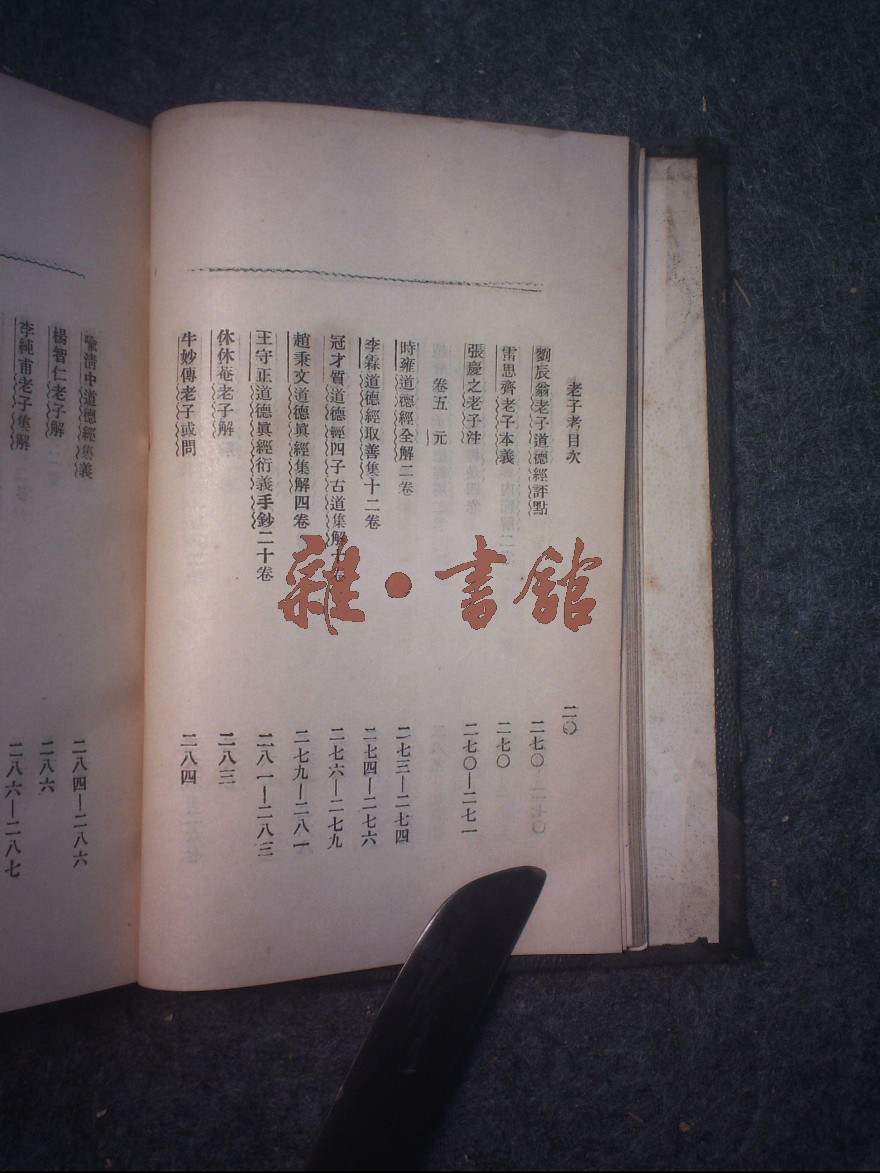 老子考目次
二〇
劉辰翁老子道德經評點
二七〇—二七〇
雷思齊老子本義
二七〇
張慶之老子注
二七〇—二七一
卷五 元
時雍道德經全解二卷
二七三—二七四
李霖道德經取善集十二卷
二七四—二七六
冠才質道德經四子古道集解十卷
二七六—二七九
趙秉文道德眞經集解四卷
二七九—二八一
王守正道德眞經衍義手鈔二十卷
二八一—二八三
休休菴老子解
二八三
牛妙傳老子或問
二八四
喩淸中道德經集義
二八四—二八六
楊智仁老子解
二八六
李純甫老子集解
二八六—二八七
雜·書館